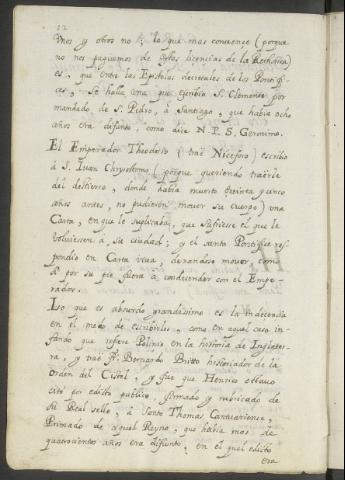 12
Unos y otros no; lo que mas convence (porque
no nos paguemos de estas licencias de la Rethorica)
es, que entre las Epistolas decretales de los Pontifi-
ces, se halla una que escribio S. Clemente por
mandado de S. Pedro, à Santiago, que havia ocho
años era difunto, como dice N. P. S. Geronimo.
El Emperador Theodosio (trae Niceforo) escribio
à S. Juan Chrysostomo (porque queriendo traerle
del destierro, donde havia muerto treinta y cinco
años antes, no pudieron mover su cuerpo) una
Carta, en que le suplicaba, que sufriesse el que le
volviessen à su ciudad; y el santo Pontifice res-
pondio en Carta viva, dexandose mover, como
si por su pie fuera à condecender con el Empe-
rador.
Lo que es absurdo grandissimo es la indecencia
en el modo de escribirles, como en aquel caso in-
fando que refiere Polinio en la historia de Inglater-
ra, y trae Fr. Bernardo Britto historiador de la
Orden del Cistel, y fue que Henrico octavo
citò por edicto publico, firmado y rubricado de
su Real sello, à Santo Thomas Cantuariense,
Primado de aquel Reyno, que havia mas de
quatrocientos años era difunto, en el qual edicto
era